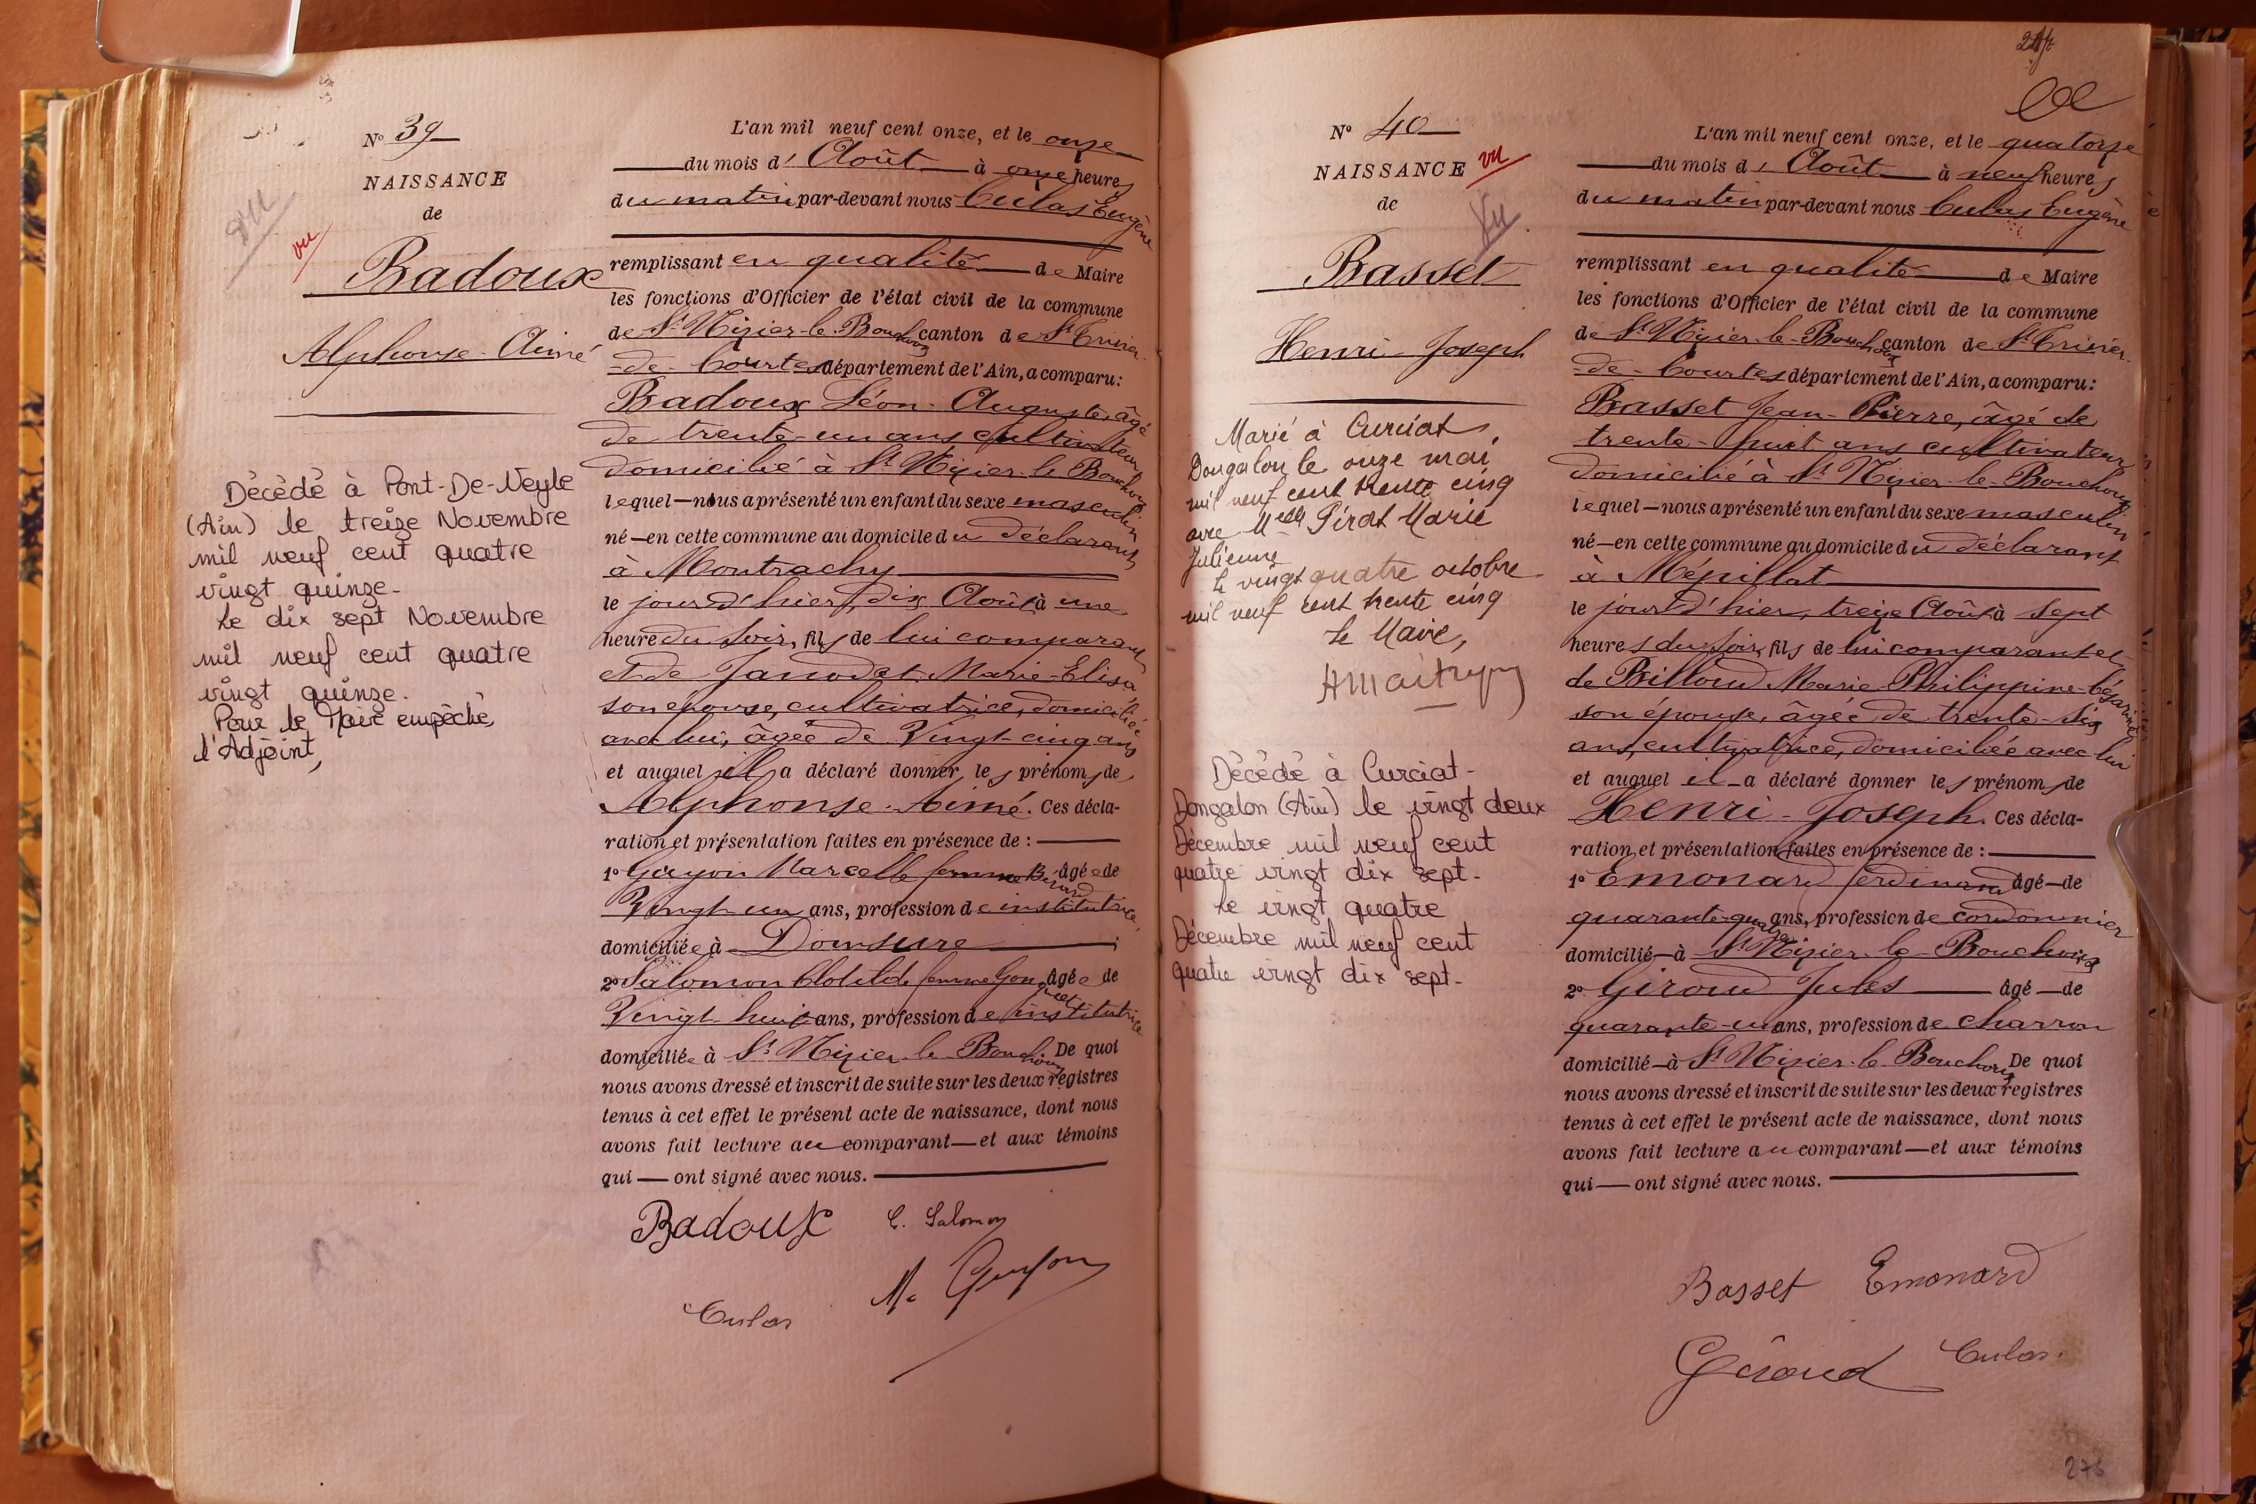 N° 39
NAISSANCE
de
Badoux
Alphonse-Aimé
vu
Décédé à Pont-De-Veyle
(Ain) le treize Novembre
mil neuf cent quatre
vingt quinze-
Le dix sept Novembre
mil neuf cent quatre
vingt quinze.
Pour le Maire empêché,
l'Adjoint,
L'an mil neuf cent onze, et le onze
du mois d'Août à onze heures
du matin par-devant nous Culas Eugène
remplissant en qualité de Maire
les fonctions d'Officier de l'état civil de la commune
de St Nizier-le-Bouchoux canton de St Trivier-
-de-Courtes département de l'Ain, a comparu:
Badoux Léon-Auguste, âgé
de trente-un ans cultivateur
domicilié à St Nizier-le-Bouchoux
lequel—nous a présenté un enfant du sexe masculin
né—en cette commune au domicile du déclarant
à Montrachy
le jour d'hier, dix Août à une
heure du soir, fils de lui comparant
et de Janodet Marie-Elisa
son épouse, cultivatrice, domiciliée
avec lui, âgée de Vingt-cinq ans
et auquel il a déclaré donner les prénoms de
Alphonse-Aimé. Ces décla-
ration et présentation faites en présence de :
1° Guyon Marcelle femme Bérard âgée de
Vingt un ans, profession de institutrice,
domiciliée à Domsure ;
2° Salomon Clotilde femme âgée de
Vingt huit ans, profession de institutrice
domiciliée à St Nizier-le-Bouchoux De quoi
nous avons dressé et inscrit de suite sur les deux registres
tenus à cet effet le présent acte de naissance, dont nous
avons fait lecture au comparant—et aux témoins
qui — ont signé avec nous.
Badoux C. Salomon
Culas M. Guyon
N° 40
NAISSANCE vu
de
Basset
Henri-Joseph
Marié à Curciat
Dongalon le onze mai
mil neuf cent trente cinq
avec Melle Pérat Marie
Julienne
Le vingt quatre octobre
mil neuf cent trente cinq
Le Maire,
Décédé à Curciat-
Dongalon (Ain) le vingt deux
Décembre mil neuf cent
quatre vingt dix sept-
Le vingt quatre
Décembre mil neuf cent
quatre vingt dix sept-
L'an mil neuf cent onze, et le quatorze
du mois d'Août à neuf heures
du matin par-devant nous Culas Eugène
remplissant en qualité de Maire
les fonctions d'Officier de l'état civil de la commune
de St Nizier-le-Bouchoux canton de St Trivier-
-de-Courtes département de l'Ain, a comparu:
Basset Jean-Pierre, âgé de
trente-huit ans cultivateur
domicilié à St Nizier-le-Bouchoux
lequel—nous a présenté un enfant du sexe masculin
né—en cette commune au domicile du déclarant
à Mépillat
le jour d'hier, treize Août à sept
heures du soir, fils de lui comparant et
de Billoud Marie Philippine-Césarine
son épouse, âgée de trente-six
ans, cultivatrice, domiciliée avec lui
et auquel il a déclaré donner les prénoms de
Henri-Joseph. Ces décla-
ration et présentation faites en présence de :
1° Emonard Ferdinand âgé—de
ans, profession de cordonnier
domicilié—à St Nizier-le-Bouchoux
2° Giroud Jules âgé—de
quarante-un ans, profession de charron
domicilié—à St Nizier-le-Bouchoux De quoi
nous avons dressé et inscrit de suite sur les deux registres
tenus à cet effet le présent acte de naissance, dont nous
avons fait lecture au comparant—et aux témoins
qui — ont signé avec nous.
Basset Emonard
Giroud Culas
276